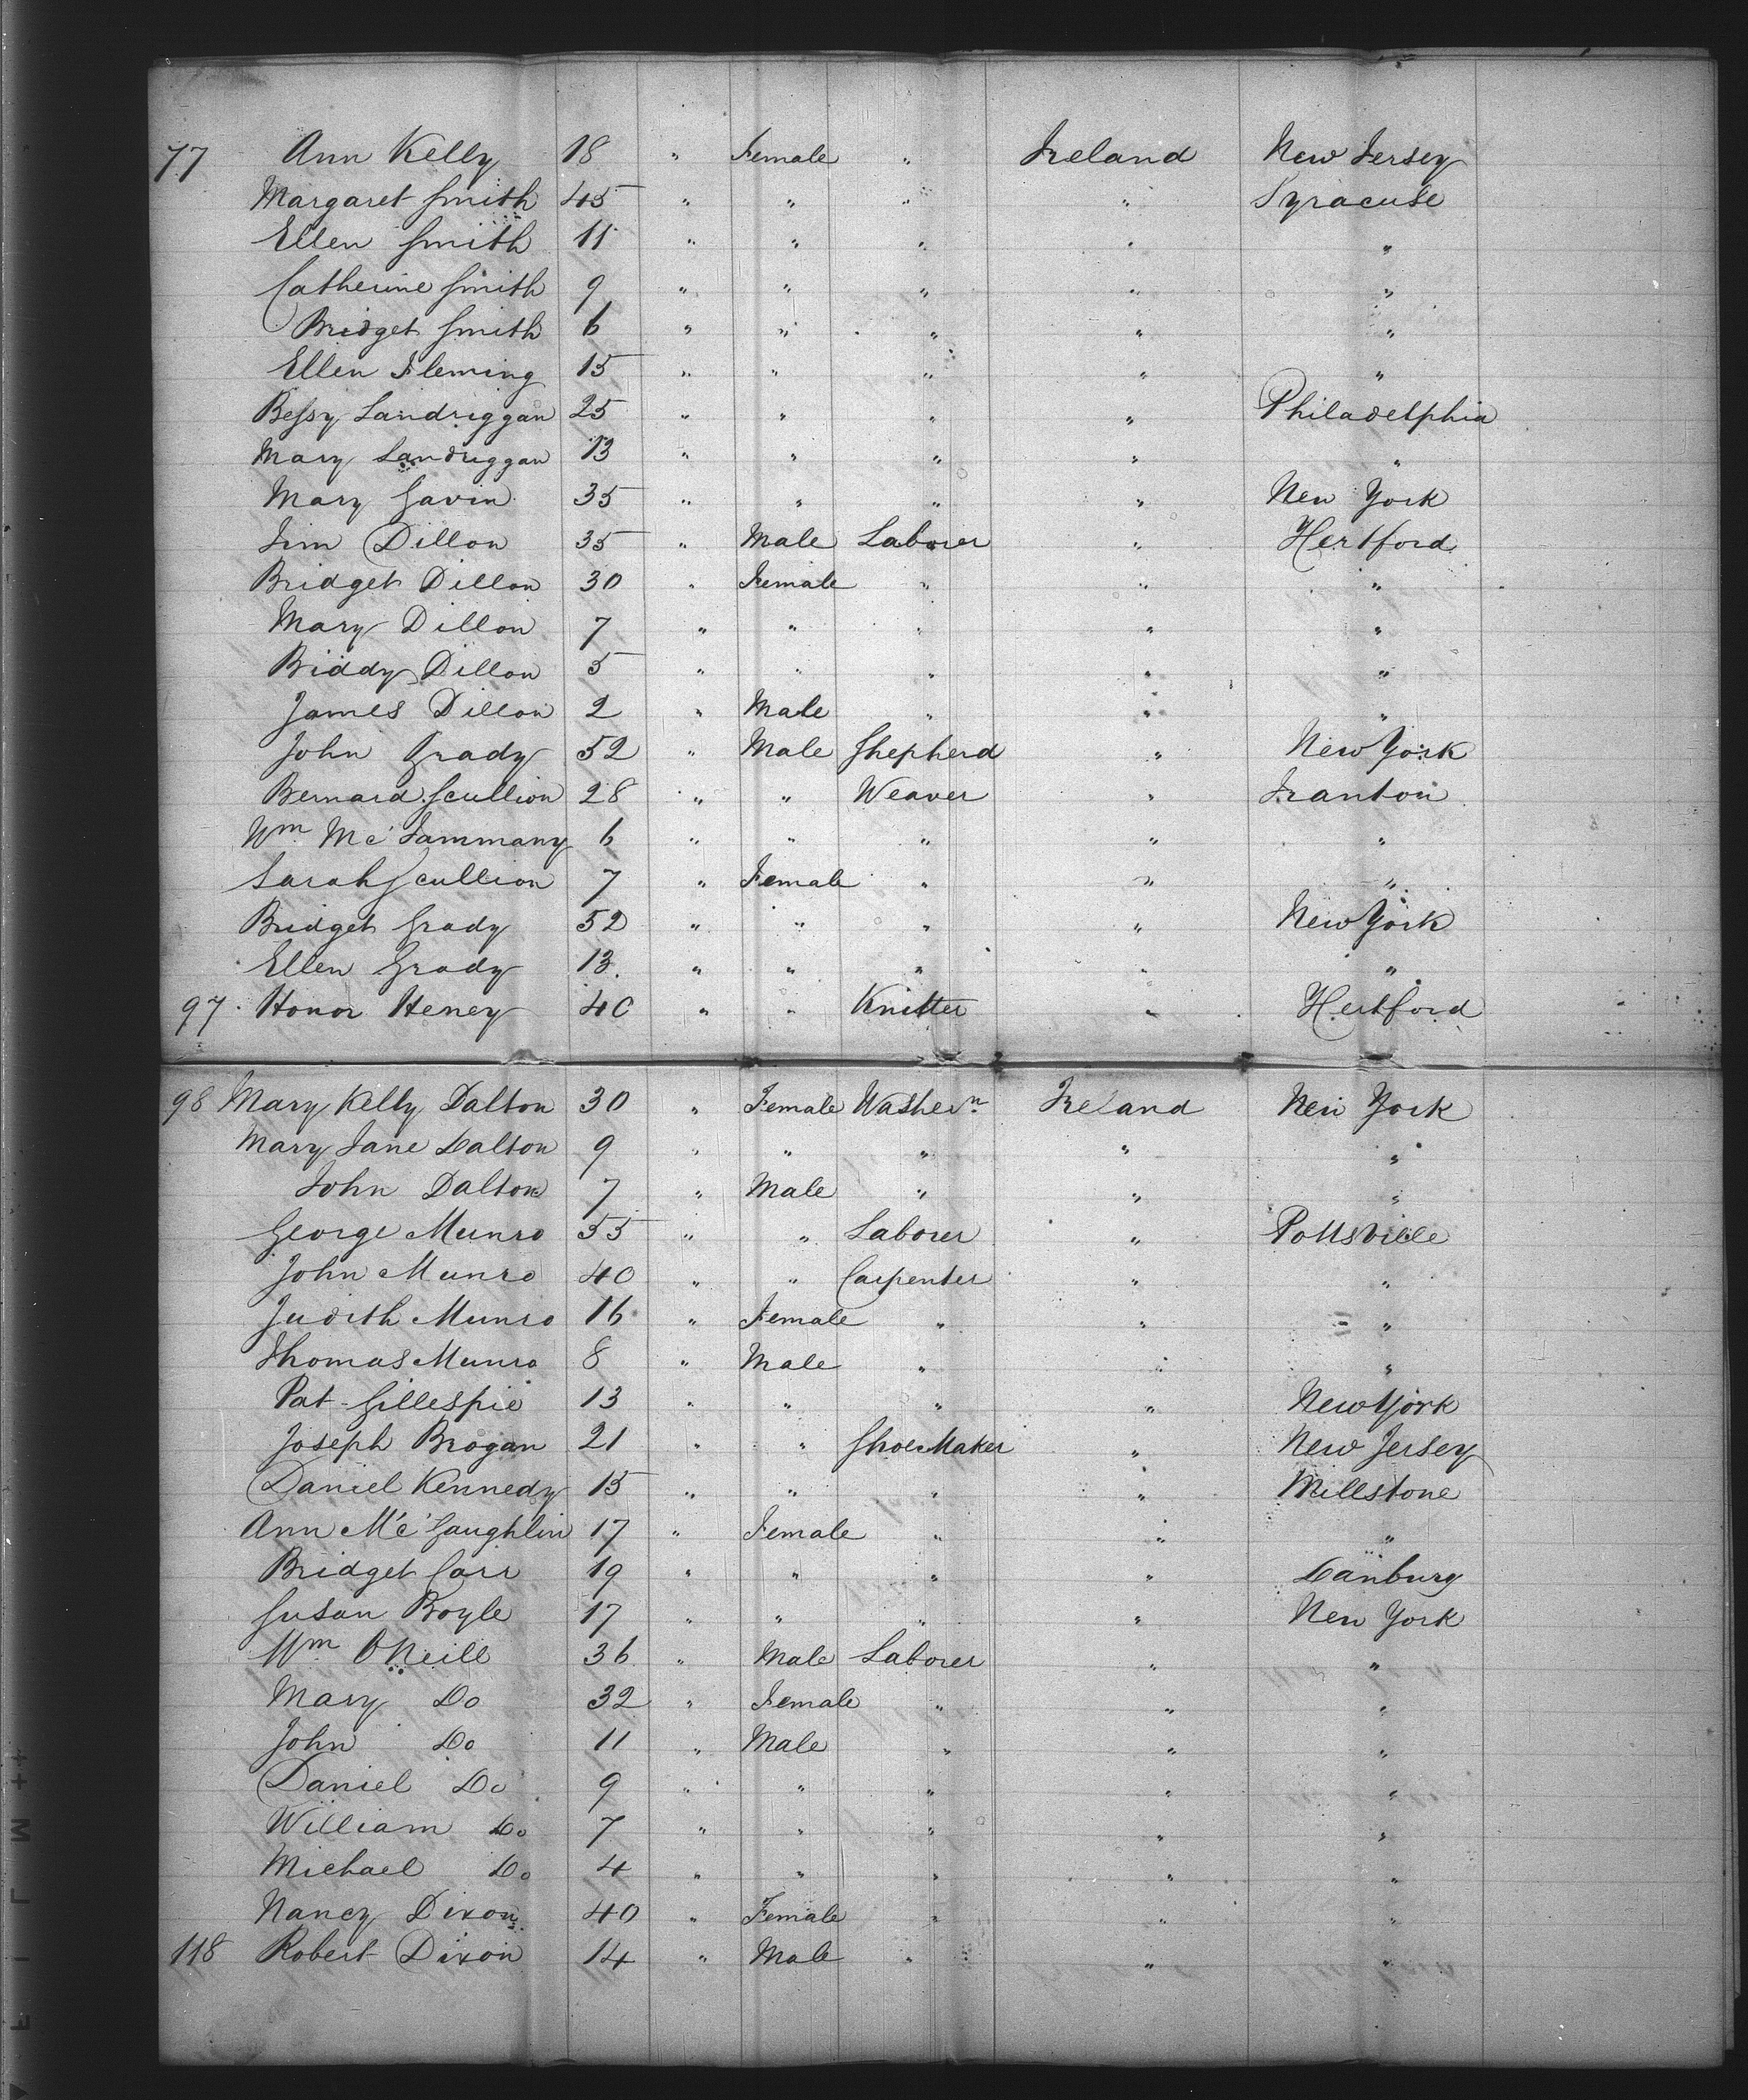 77 Ann Kelly 18 " Female " Ireland New Jersey
Margaret Smith 45 " " " " Syracuse
Ellen Smith 11 " " " " "
Catherine Smith 9 " " " " "
Bridget Smith 6 " " " " "
Ellen Fleming 15 " " " " "
Bessy Landriggan 25 " " " " Philadelphia
Mary Landriggan 13 " " " " "
Mary Gavin 35 " " " " New York
Jim Dillon 35 " Male Laborer " Hertford
Bridget Dillon 30 " Female " " "
Mary Dillon 7 " " " " "
Biddy Dillon 5 " " " " "
James Dillon 2 " Male " " "
John Grady 52 " Male Shepherd " New York
Bernard Scullion 28 " " Weaver " Franton
Wm Mc Tammany 6 " " " " "
Sarah Scullion 7 " Female " " "
Bridget Grady 52 " " " " New York
Ellen Grady 13 " " " " "
97 Honor Heney 40 " " Knitter " Hertford
98 Mary Kelly Dalton 30 " Female Washer Ireland New York
Mary Jane Dalton 9 " " " " "
John Dalton 7 " Male " " "
George Munro 55 " " Laborer " Pottsville
John Munro 40 " " Carpenter " "
Judith Munro 16 " Female " " "
Thomas Munro 8 " Male " " "
Pat Gillespie 13 " " " " New York
Joseph Brogan 21 " " Shoe Maker " New Jersey
Daniel Kennedy 15 " " " " Millstone
Ann McGaughlin 17 " Female " " "
Bridget Carr 19 " " " " Danbury
Susan Boyle 17 " " " " New York
Wm ONeill 36 " Male Laborer " "
Mary Do 32 " Female " " "
John Do 11 " Male " " "
Daniel Do 9 " " " " "
William Do 7 " " " " "
Michael Do 4 " " " " "
Nancy Dixon 40 " Female " " "
118 Robert Dixon 14 " Male " " "